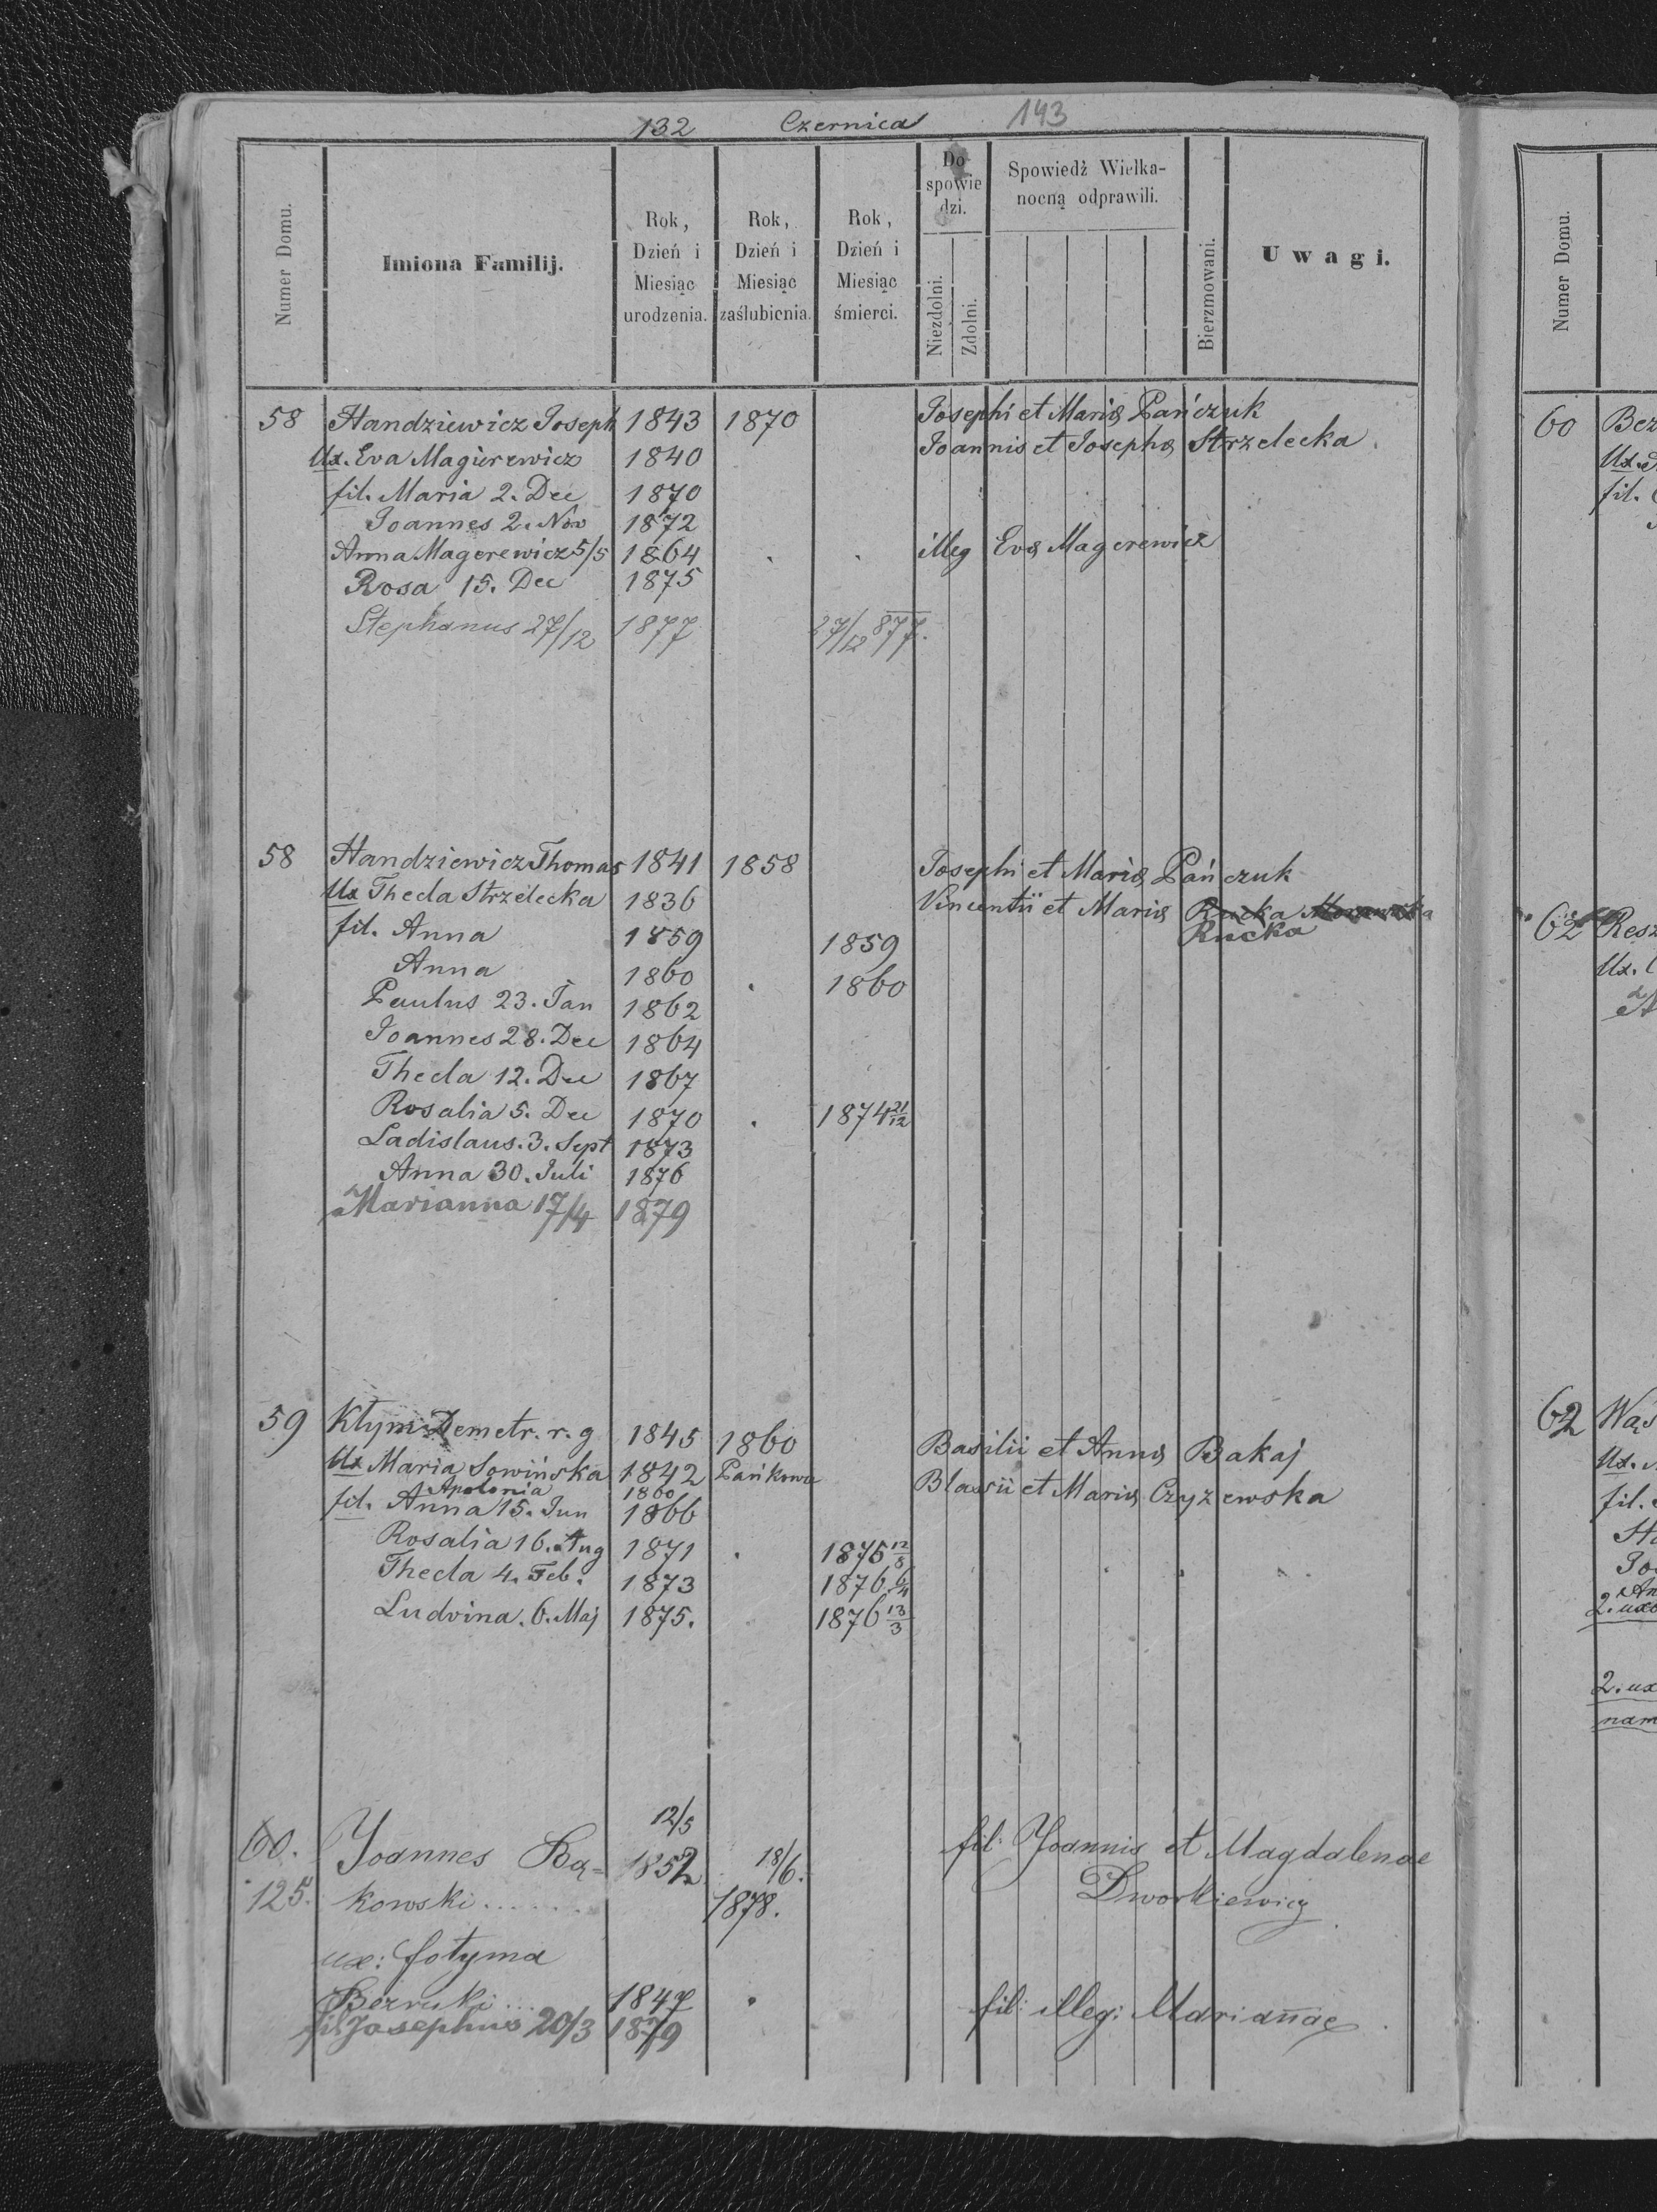 132 Czernica 143
Numer Domu.
Imiona Familij.
Rok, Dzień i Miesiąc urodzenia.
Rok, Dzień i Miesiąc zaślubienia.
Rok, Dzień i Miesiąc śmierci.
Do spowie dzi.
Niezdolni.
Zdolni.
Spowiedź Wielka-
nocną odprawili.
Bierzmowani.
Uwagi.
58 Handziewicz Joseph 1843 1870 Josephi et Maria Pańczuk
Ux. Eva Magierewicz 1840 Joannis et Josepha Strzelecka
fil. Maria 2. Dec 1870
Joannes 2. Nov 1872
Anna Magerewicz 5/5 1864 illeg Eva Magerewicz
Rosa 15. Dec 1875
Stephanus 27/12 1877 27/12 877.
58 Handziewicz Thomas 1841 1858 Josephi et Maria Pańczuk
Ux Thecla Strzelecka 1836 Vincentii et Maria Rucka
fil. Anna 1859 1859 Rucka
Anna 1860 1860
Paulus 23. Jan 1862
Joannes 28. Dec 1864
Thecla 12. Dec 1867
Rosalia 5. Dec 1870 1874 21/12
Ladislaus. 3. Sept 1873
Anna 30. Juli 1876
Marianna 17/4 1879
59 Kłym Demetr. r. g 1845 1860 Basilii et Anna Bakaj
Ux Maria Sowińska 1842 Pańkowce Blasii et Maria Czyzewska
Apolonia 1860
fil. Anna 15. Jun 1866
Rosalia 16. Aug 1871 1875 12/8
Thecla 4. Feb. 1873 1876 6/4
Ludvina. 6. Maj 1875. 1876 13/3
12/5
60. Joannes Bą= 1852 18/6. fil: Joannis et Magdalenae
125. kowski ...... 1878. Dworkiewicz
ux: fotyma
Bezruki ... 1847 fil: illeg: Mariañae
fil Josephus 20/3 1879
Numer Domu.
60 Bez
Ux.
fil.
62 Resz
Ux.
62 Wąs
Ux.
fil.
2. uxo
2. ux
nam